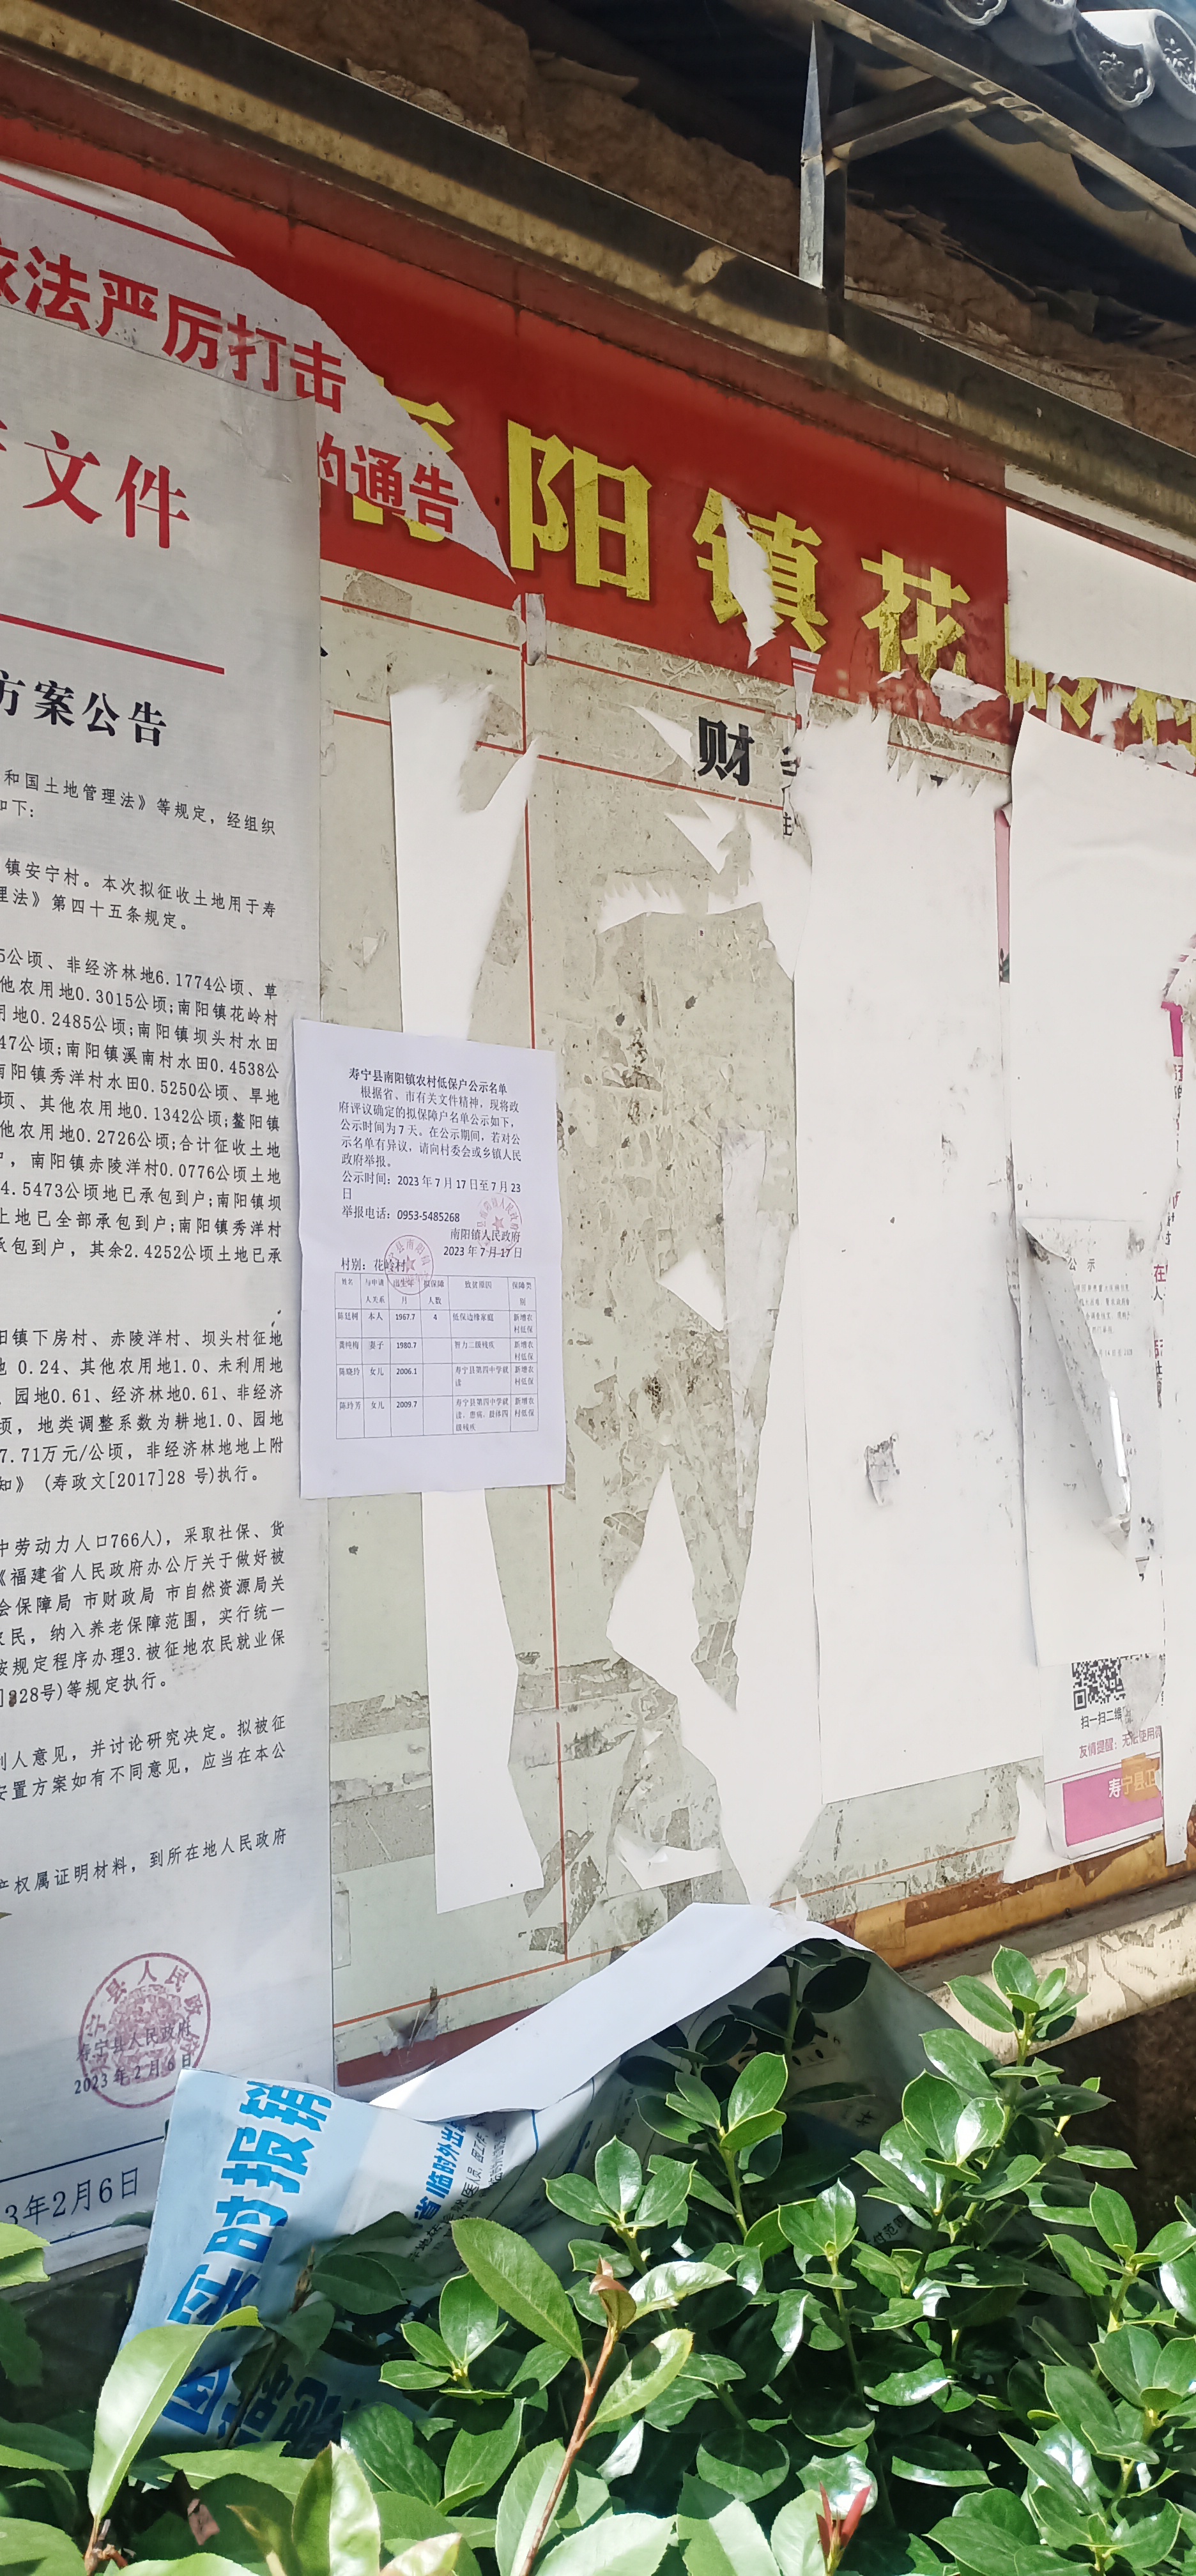 依法严厉打击
的通告
文件
方案公告
和国土地管理法》等规定，经组织
如下:
镇安宁村。本次拟征收土地用于寿
理法》第四十五条规定。
5公顷、非经济林地6.1774公顷、草
他农用地0.3015公顷;南阳镇花岭村
用地0.2485公顷;南阳镇坝头村水田
47公顷;南阳镇溪南村水田0.4538公
南阳镇秀洋村水田0.5250公顷、旱地
顷、其他农用地0.1342公顷;鳌阳镇
他农用地0.2726公顷;合计征收土地
，南阳镇赤陵洋村0.0776公顷土地
4.5473公顷地已承包到户;南阳镇坝
土地已全部承包到户;南阳镇秀洋村
承包到户，其余2.4252公顷土地已承
阳镇下房村、赤陵洋村、坝头村征地
地 0.24、其他农用地1.0、未利用地
、园地0.61、经济林地0.61、非经济
顷，地类调整系数为耕地1.0、园地
7.71万元/公顷，非经济林地地上附
知》（寿政文[2017]28 号)执行。
中劳动力人口766人)，采取社保、货
《福建省人民政府办公厅关于做好被
会保障局 市财政局 市自然资源局关
农民，纳入养老保障范围，实行统一
按规定程序办理3.被征地农民就业保
28号)等规定执行。
利人意见，并讨论研究决定。拟被征
安置方案如有不同意见，应当在本公
产权属证明材料，到所在地人民政府
寿宁县人民政府
2023年2月6日
3年2月6日
阳镇花岭村
财
寿宁县南阳镇农村低保户公示名单
根据省、市有关文件精神，现将政
府评议确定的拟保障户名单公示如下，
公示时间为7天。在公示期间，若对公
示名单有异议，请向村委会或乡镇人民
政府举报。
公示时间：2023年7月17日至7月23
日
举报电话：0953-5485268
南阳镇人民政府
2023年7月17日
村别：花岭村
姓名 与申请人关系 出生年月 拟保障人数 致贫原因 保障类别
陈廷树 本人 1967.7 4 低保边缘家庭 新增农村低保
龚纯梅 妻子 1980.7 智力二级残疾 新增农村低保
陈晓玲 女儿 2006.1 寿宁县第四中学就读 新增农村低保
陈玲芳 女儿 2009.7 寿宁县第四中学就读、患病、肢体四级残疾 新增农村低保
公示
扫一扫二维
友情提醒：
寿宁县卫
实时报销
省临时外出